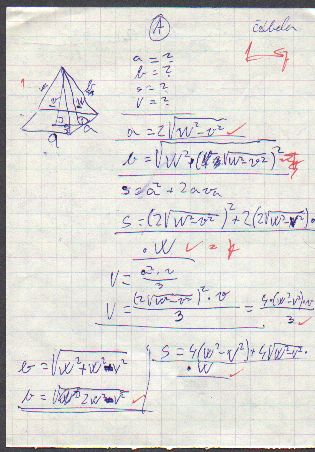 A
a = ?
b = ?
s = ?
v = ?
a = 2√w²-v²
b = √w²+(√w²-v²)²
s = a² + 2ava
S = (2√w²-v²)² + 2(2√w²-v²)·
· w
V = a²·v/3
V = (2√w²-v²)²·v/3 = 4·(w²-v²)·v/3
b = √w²+w²-v²
b = √2w²-v²
S = 4(w²-v²)+4√w²-v²·
· w